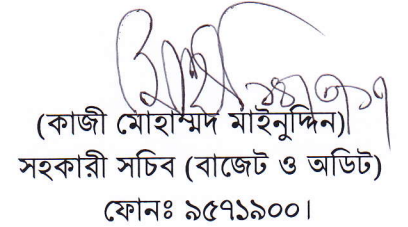 (কাজী মোহাম্মদ মাইনুদ্দিন)
সহকারী সচিব (বাজেট ও অডিট)
ফোনঃ ৯৫৭১৯০০।